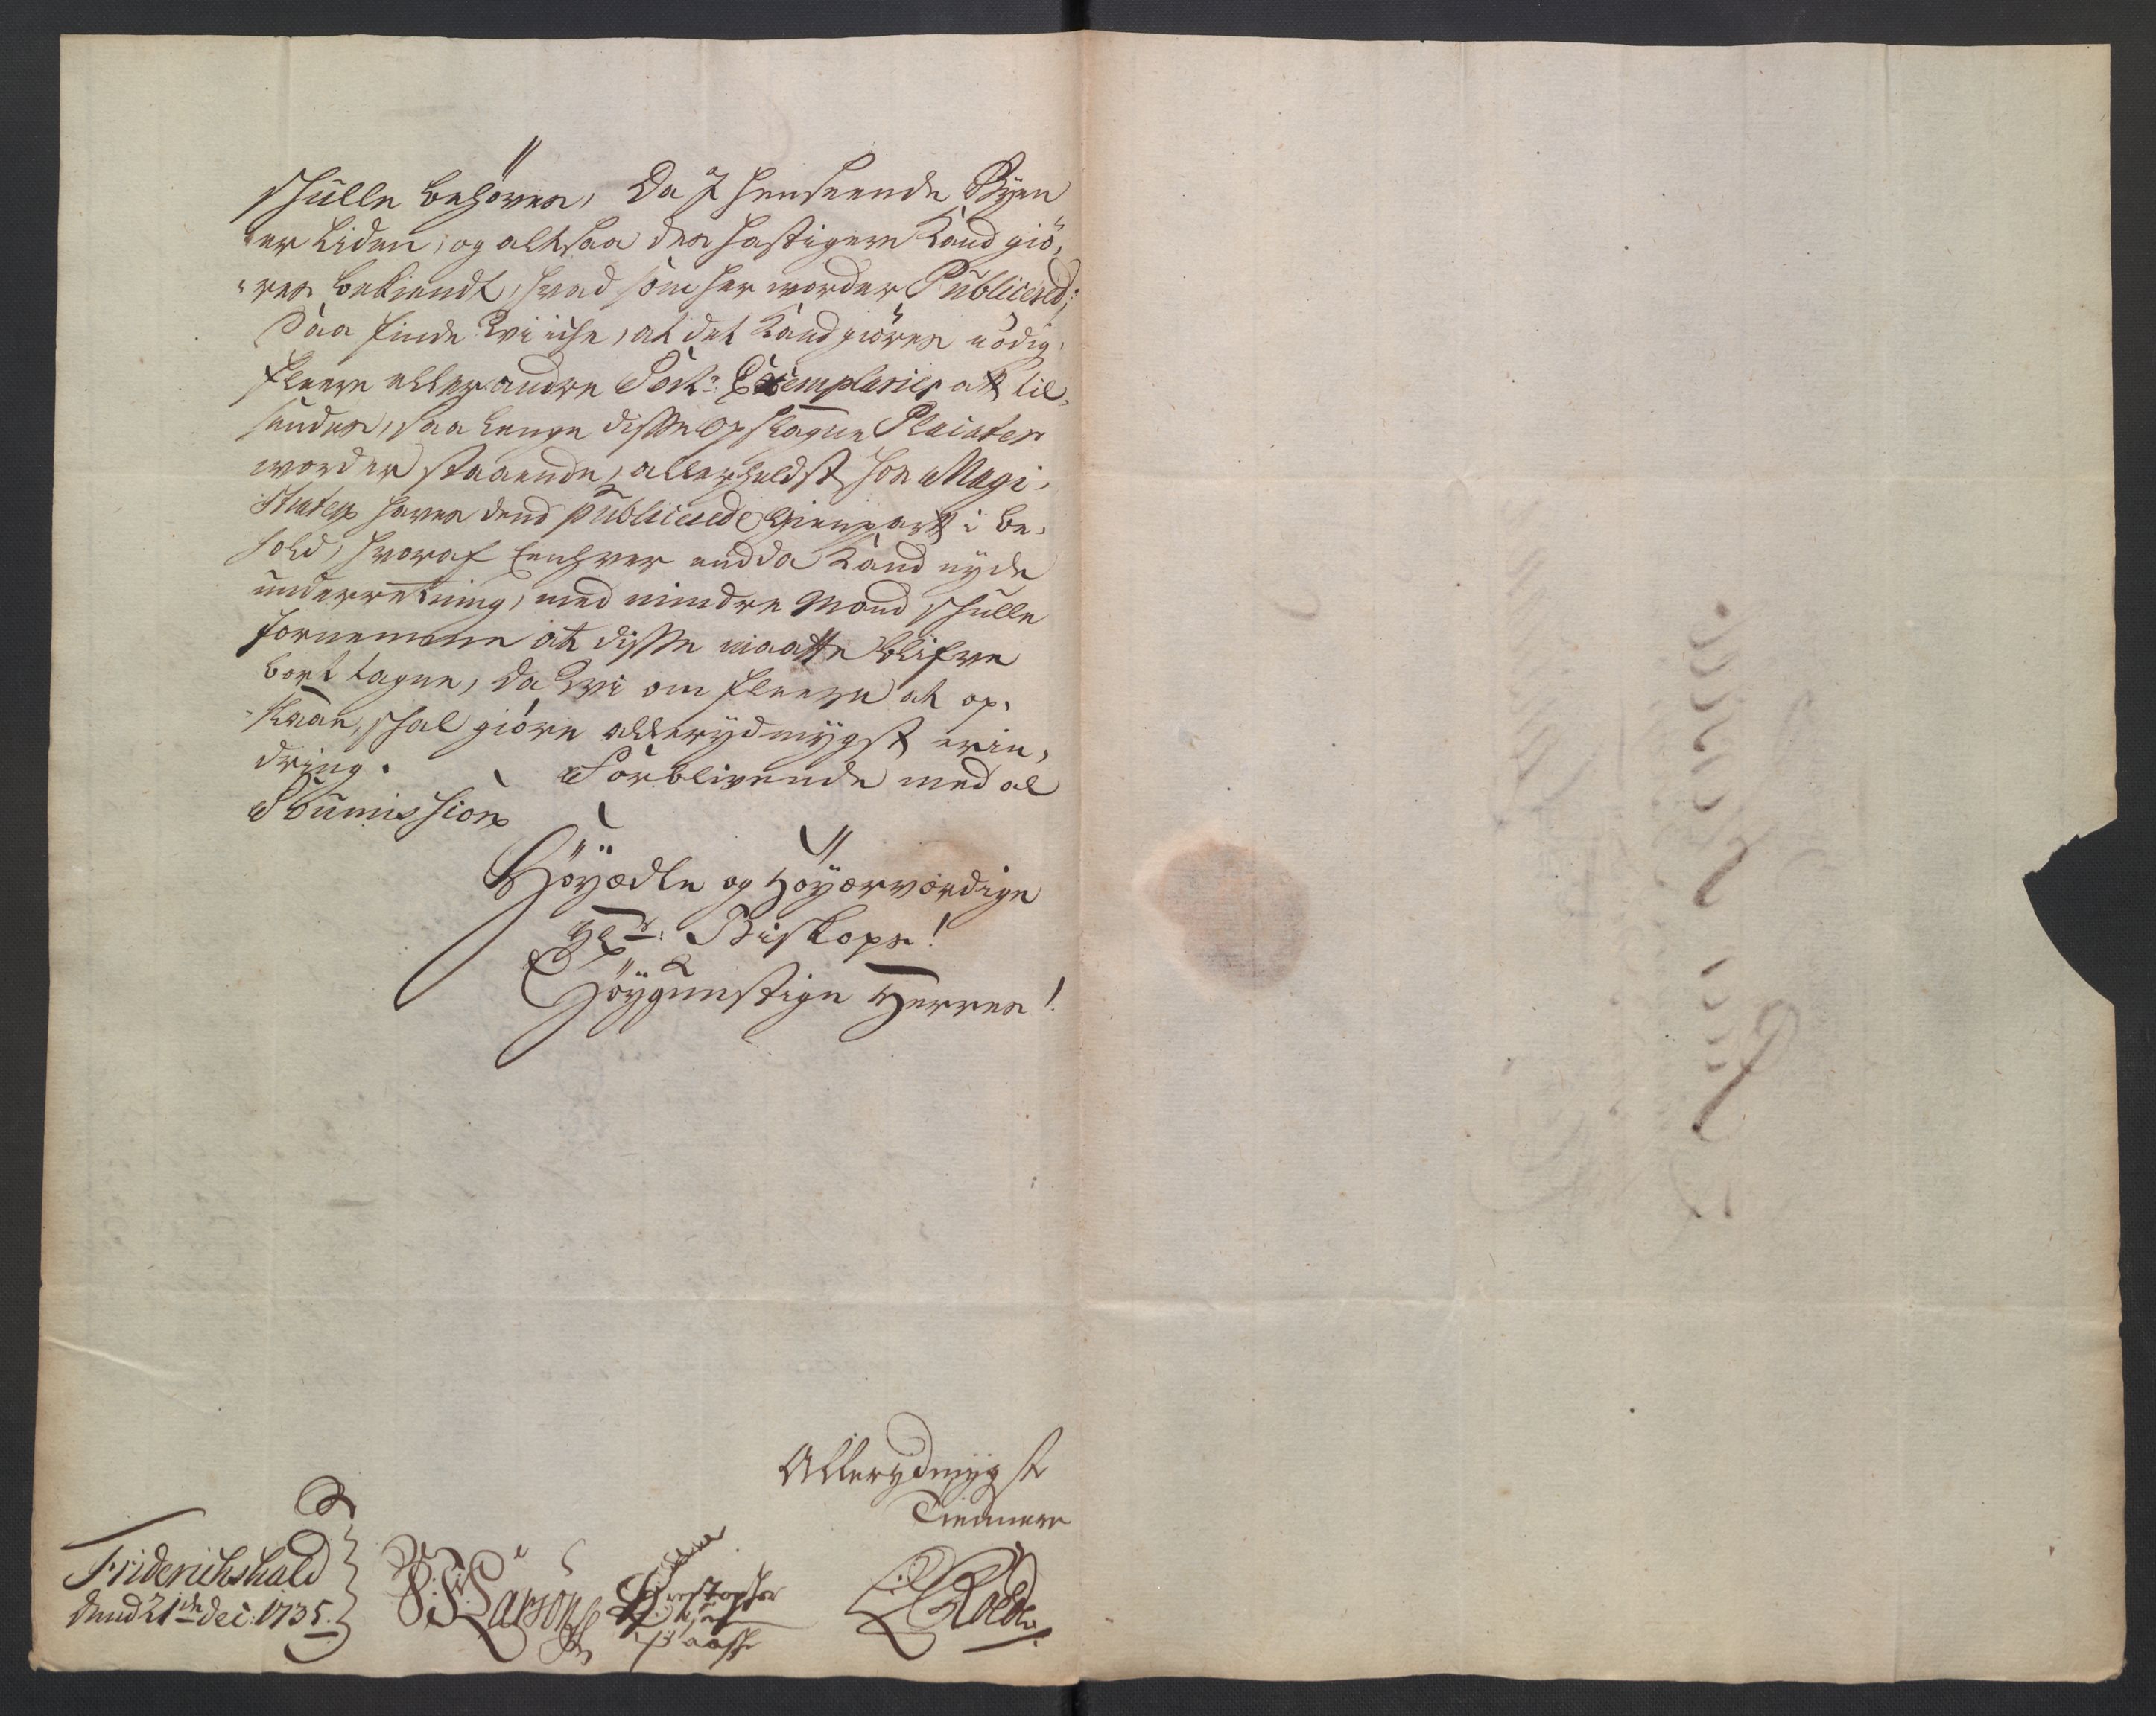 skulle behöves, Da I henseende Byen
er Liden, og altsaa des hastigere kand giö,
res bekiendt, hvad som her worder Publicered;
Saa finde Wi iche, at det kand giöres nödig,
fleere eller andre Exemplarier at til,
sendes, saa lenge disse opslagne Placater
worder staaende, allerheldst hos Magi,
straten haves dend publicerede Gienpart i be,
hold, hvoraf Eenhver endda kand nyde
underretning, med mindre Mand skulle
fornemme at disse maatte blifve
bort tagne, da Wi om fleere at op,
slaae, skal giöre allerydmygst erin,
dring. Forblivende med al
Soumission
Höyædle og Höyærværdige
Hr: Biskops!
Höygunstige Herres!
Allerydmygst
Tiennere
Friderichshald
dend 21de dec: 1735.